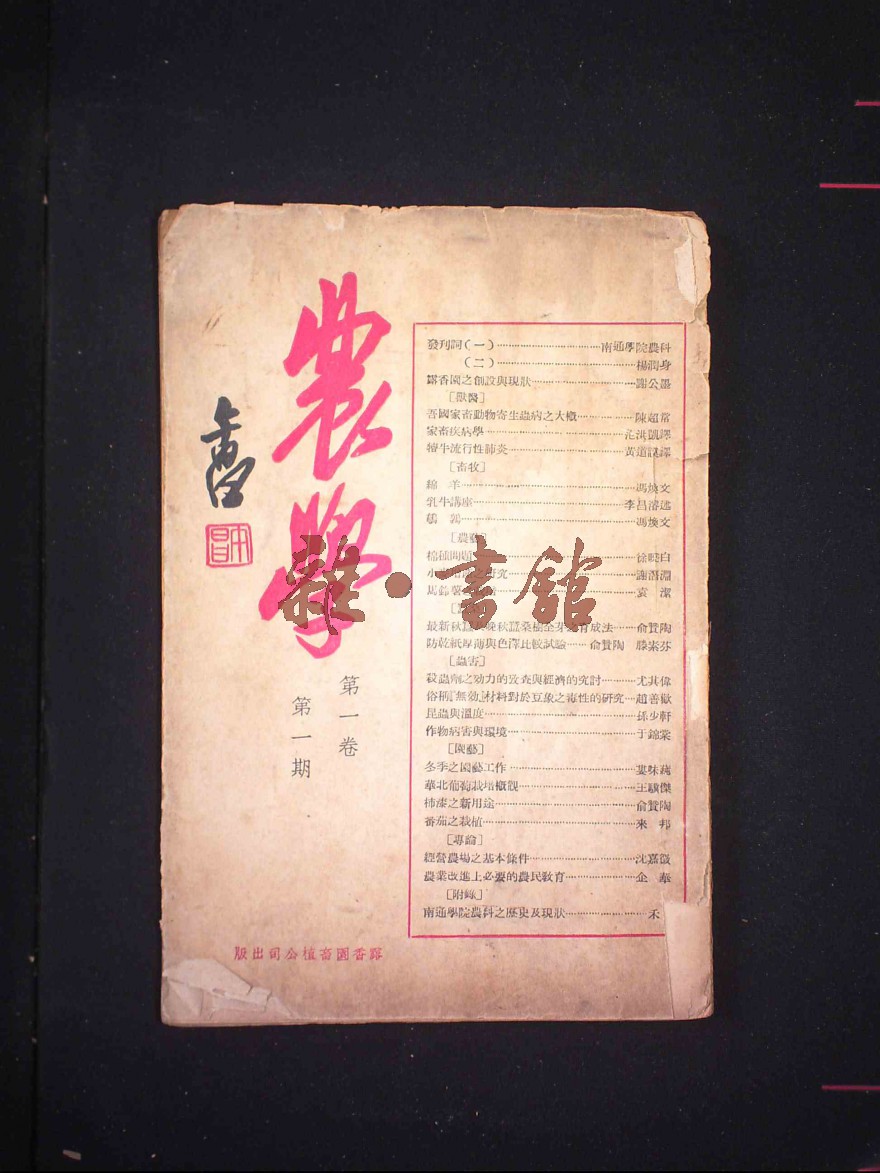 農學
第一卷
第一期
發刊詞(一)……南通學院農科
(二)……楊潤身
露香園之創設與現狀……謝公墨
[獸醫]
吾國家畜動物寄生蟲病之大概……陳超常
家畜疾病學……譯
犢牛流行性肺炎……黃道譯
[畜牧]
綿 羊……馮煥文
乳牛講座……李昌濬述
鵪 鶉……馮煥文
[農藝]
棉種問題……徐曉白
小究……謝淵
馬鈴薯……袁 潔
最新秋蠶晚秋蠶桑樹全芽育成法……俞贊陶
防乾紙厚薄與色澤比較試驗……俞贊陶 滕素芬
[蟲害]
殺蟲劑之効力的攷查與經濟的究討……尤其偉
俗稱「無効」材料對於豆象之毒性的研究…趙善歡
昆蟲與溫度……孫少軒
作物病害與環境……于錦棠
[園藝]
冬季之園藝工作……婁味蒓
華北葡萄栽培概觀……王驥傑
柿漆之新用途……俞贊陶
番茄之栽植……來 邦
[專論]
經營農場之基本條件……沈嘉徵
農業改進上必要的農民敎育……企 華
[附錄]
南通學院農科之歷史及現狀……禾
露香園畜植公司出版
雜·書館